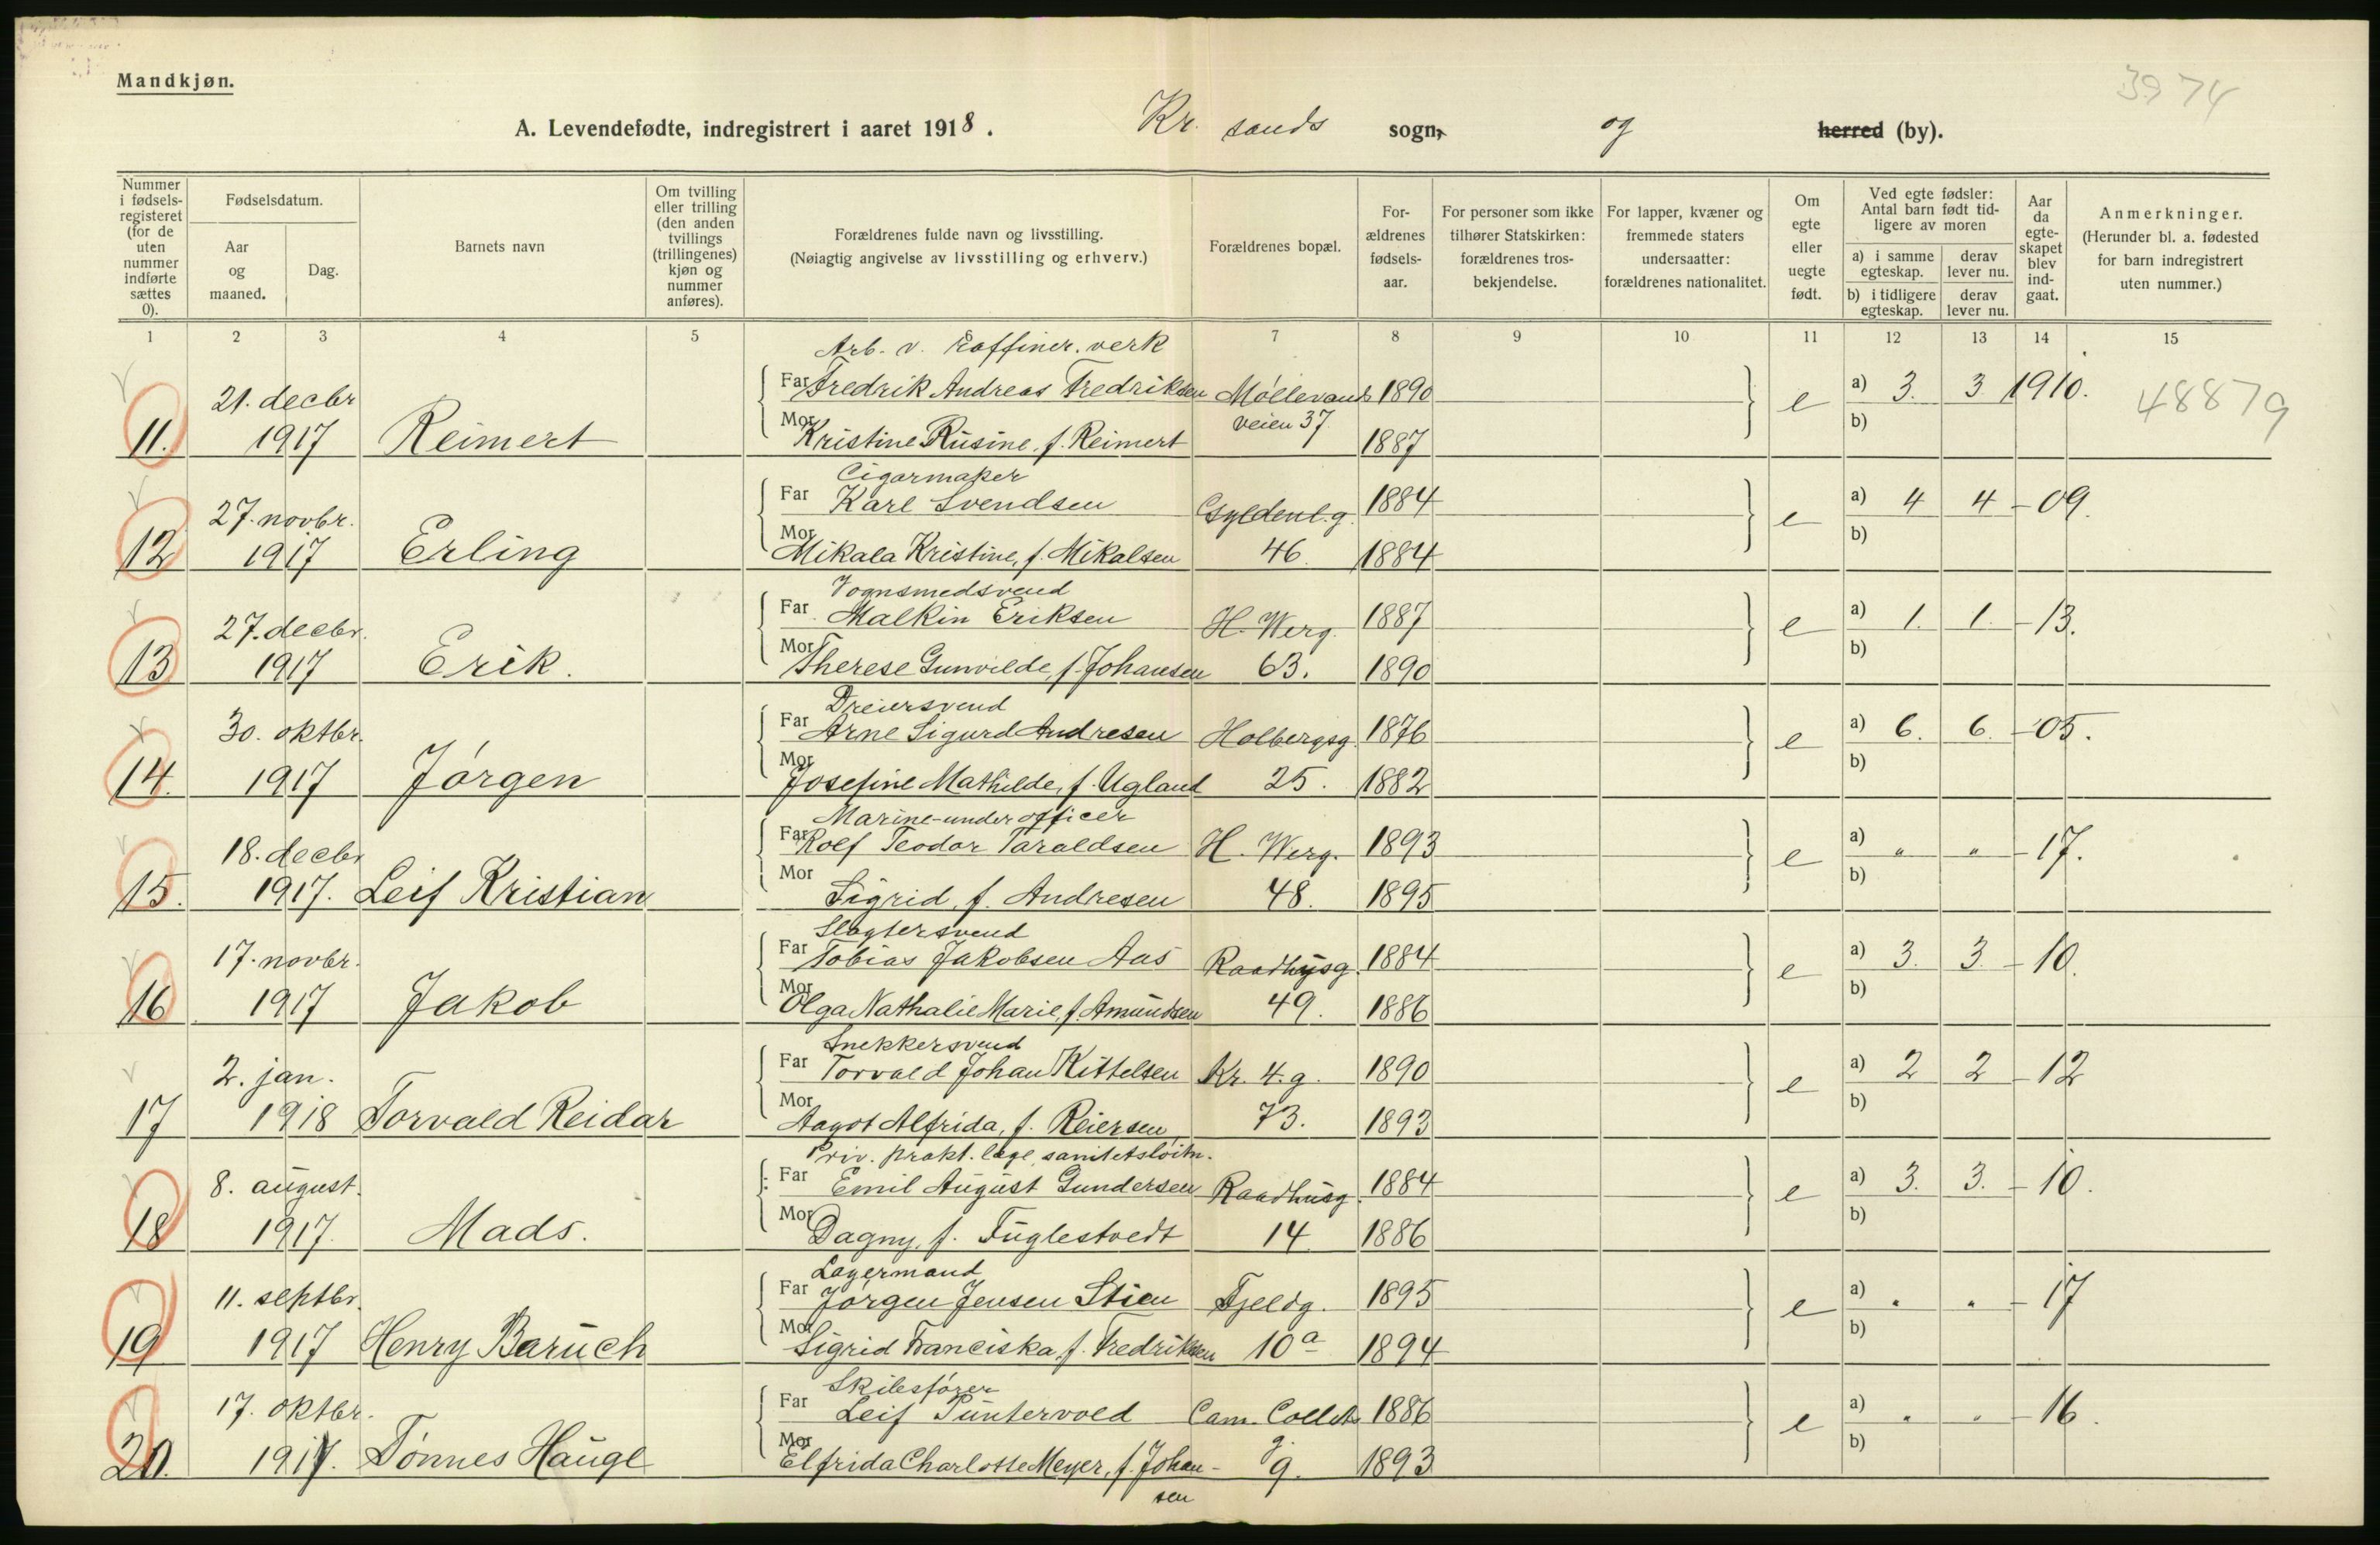 Mandkjøn.
3974
A. Levendefødte, indregistrert i aaret 1918. Kr. sands sogn, og herred (by).
Nummer i fødsels-registeret (for de uten nummer indførte sættes 0).
Fødselsdatum.
Aar og maaned.
Dag.
Barnets navn
Om tvilling eller trilling (den anden tvillings (trillingenes) kjøn og nummer anføres).
Forældrenes fulde navn og livsstilling.
(Nøiagtig angivelse av livsstilling og erhverv.)
Forældrenes bopæl.
For-ældrenes fødsels-aar.
For personer som ikke tilhører Statskirken: forældrenes tros-bekjendelse.
For lapper, kvæner og fremmede staters undersaatter: forældrenes nationalitet.
Om egte eller uegte født.
Ved egte fødsler: Antal barn født tid-ligere av moren
a) i samme egteskap. derav lever nu.
b) i tidligere egteskap. derav lever nu.
Aar da egte-skapet blev ind-gaat.
Anmerkninger.
(Herunder bl. a. fødested for barn indregistrert uten nummer.)
1 2 3 4 5 6 7 8 9 10 11 12 13 14 15
Arb. v. Raffiner. verk
21. decbr Far Fredrik Andreas Fredriksen Møllevands 1890 e a) 3. 3 1910. 48879
11. 1917 Reimert Mor Kristine Rusine, f. Reimert veien 37 1887 b)
Cigarmaker
27. novbr. Far Karl Svendsen Gyldenl. g. 1884 e a) 4 4 - 09.
12 1917 Erling Mor Mikala Kristine, f. Mikalsen 46. 1884 b)
Vognsmedsvend
27. decbr. Far Malkin Eriksen H. Werg. 1887 e a) 1. 1. - 13.
13 1917 Erik. Mor Therese Gunvilde, f. Johansen 63. 1890 b)
Dreiersvend
30. oktbr. Far Arne Sigurd Andresen Holbergsg. 1876 e a) 6. 6. - 05.
14. 1917 Jørgen Mor Josefine Mathilde, f. Ugland 25. 1882 b)
Marine-underofficer
18. decbr Far Rolf Teodor Taraldsen H. Werg. 1893 e a) " " - 17.
15. 1917. Leif Kristian Mor Sigrid, f. Andresen 48. 1895 b)
Slagtersvend
17. novbr. Far Tobias Jakobsen Aas Raadhusg. 1884 e a) 3. 3. - 10.
16 1917 Jakob Mor Olga Nathalie Marie, f. Amundsen 49. 1886 b)
Snekkersvend
2. jan. Far Torvald Johan Kittelsen Kr. 4. g. 1890 e a) 2 2 - 12
17 1918 Torvald Reidar Mor Aagot Alfrida, f. Reiersen 73. 1893 b)
Priv. prakt. læge, sanitetsløitn.
8. august. Far Emil August Gundersen Raadhusg. 1884 e a) 3. 3. - 10.
18 1917. Mads. Mor Dagny, f. Fuglestvedt 14 1886 b)
Lagermand
11. septbr. Far Jørgen Jensen Stien Fjeldg. 1895 e a) " " - 17
19 1917 Henry Baruch Mor Sigrid Franciska, f. Fredriksen 10a 1894 b)
Skibsfører
17. oktbr. Far Leif Puntervold Cam. Collets 1886 e a) " " - 16.
20. 1917. Tønnes Hauge Mor Elfrida Charlotte Meyer, f. Johan- g. 9. 1893 b)
sen